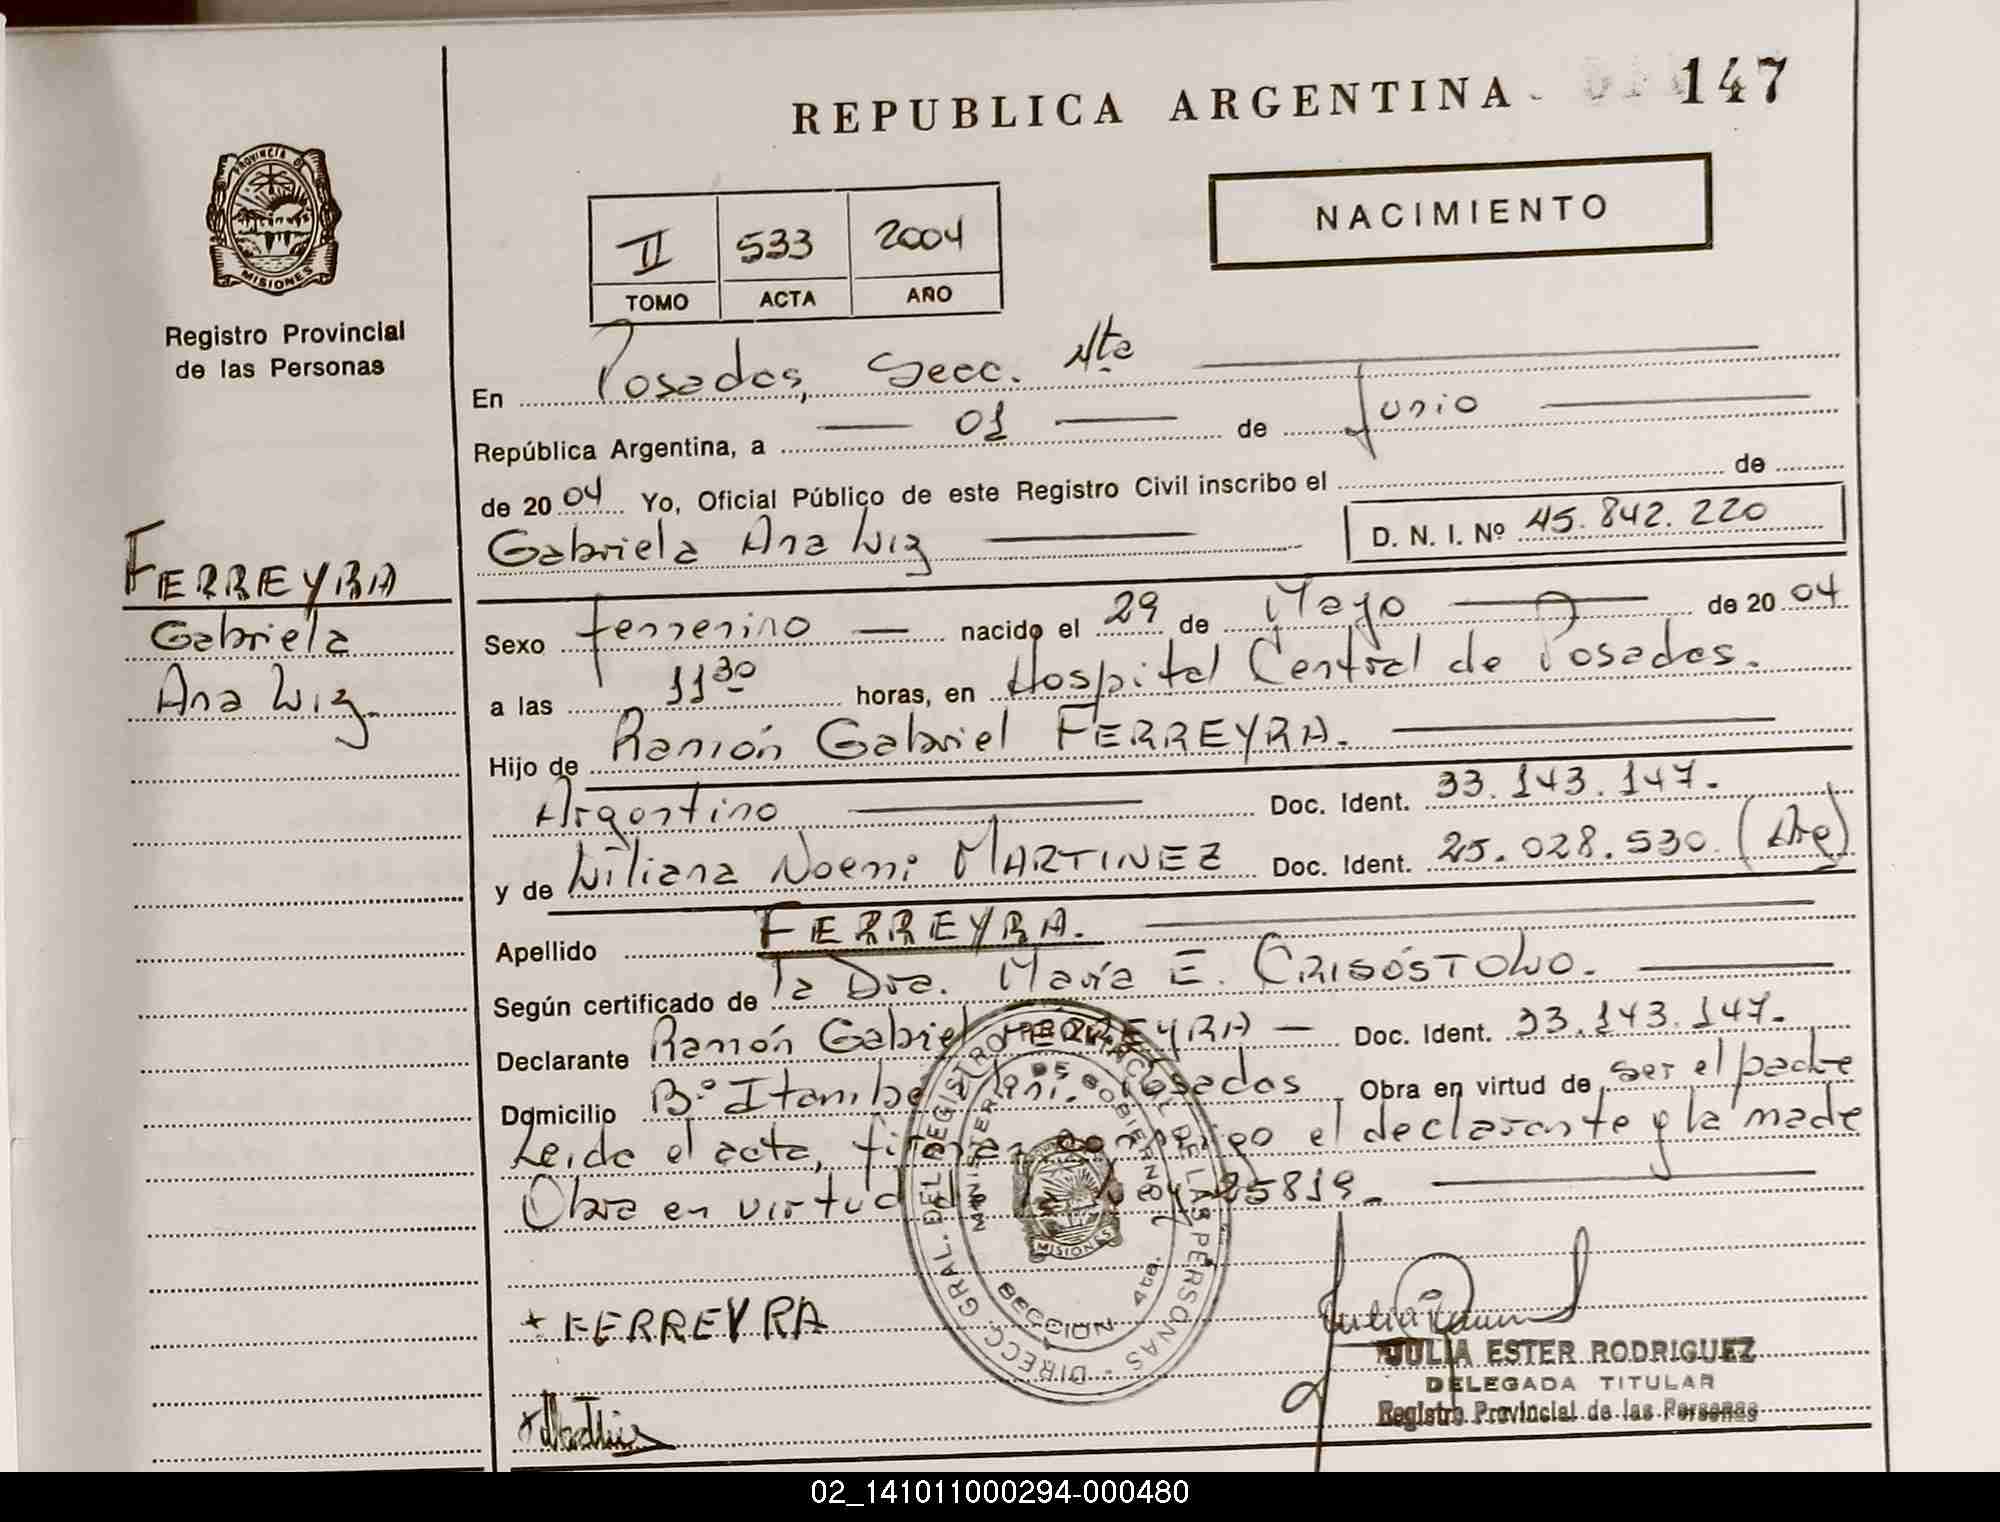 REPUBLICA ARGENTINA
147
PROVINCIA DE
MISIONES
Registro Provincial
de las Personas
NACIMIENTO
II 533 2004
TOMO ACTA AÑO
En Posadas, Secc. 4ta
República Argentina, a 01 de Junio
de 2004 Yo, Oficial Público de este Registro Civil inscribo el de
Gabriela Ana Luz D. N. I. Nº 45.842.220
FERREYRA
Gabriela
Ana Luz.
Sexo femenino nacido el 29 de Mayo de 2004
a las 11 30 horas, en Hospital Central de Posadas.
Hijo de Ramón Gabriel FERREYRA.
Argentino Doc. Ident. 33.143.147.
y de Liliana Noemi MARTINEZ Doc. Ident. 25.028.530. (Arg)
Apellido FERREYRA.
Según certificado de la Dra. María E. CRISÓSTOMO.
Declarante Ramón Gabriel FERREYRA Doc. Ident. 33.143.147.
Domicilio Bº Itambe Miní. Posadas Obra en virtud de ser el padre
Leida el acta, firman conmigo el declarante y la madre
Obra en virtud de la Ley 25819.
DIRECC. GRAL. DEL REGISTRO PROVINCIAL DE LAS PERSONAS
MINISTERIO DE GOBIERNO
MISIONES
SECCION 4ta.
+ FERREYRA
JULIA ESTER RODRIGUEZ
DELEGADA TITULAR
Registro Provincial de las Personas
02_141011000294-000480